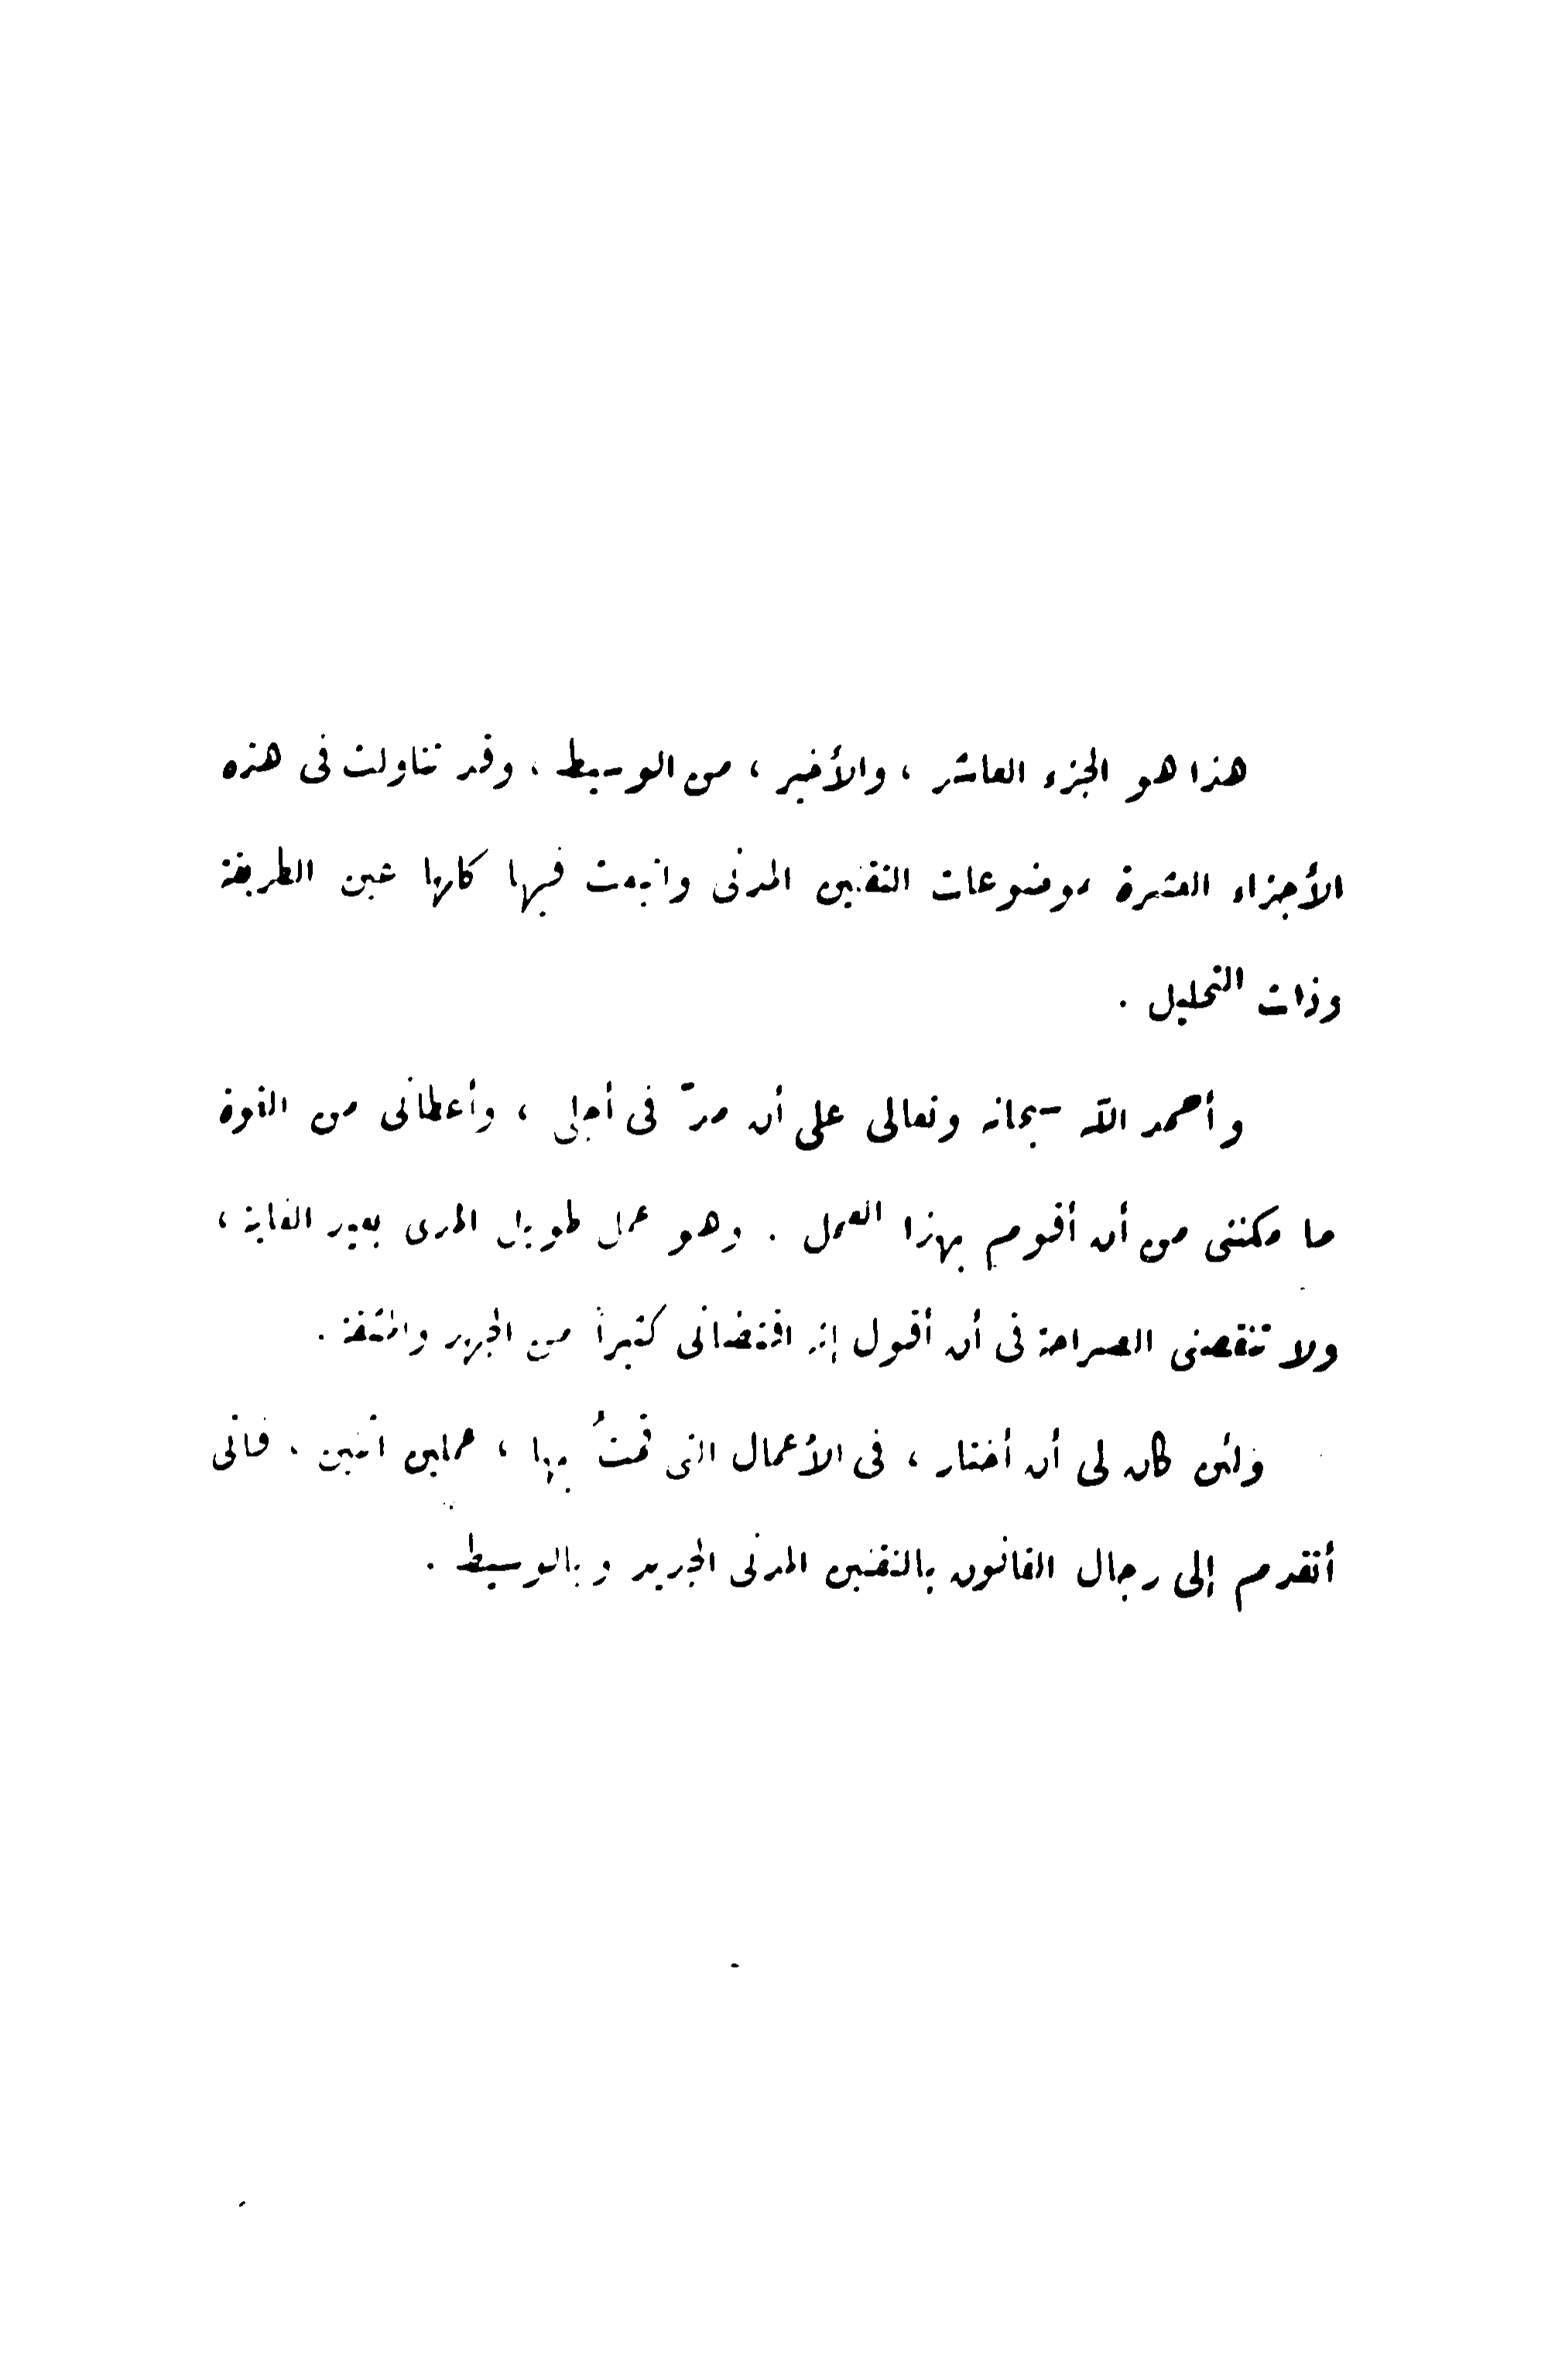 هذا هو الجزء العاشر ، والأخير ، من الوسيط ، وقد تناولت فى هذه
الأجزاء العشرة موضوعات التقنين المدنى واتبعت فيها كلها عين الطريقة
وذات التحليل .
وأحمد الله سبحانه وتعالى على أن مدّ فى أجلى ، وأعطانى من القوة
ما مكننى من أن أقوم بهذا العمل . وهو عمل طويل المدى بعيد الغاية ،
ولا تنقصنى الصراحة فى أن أقول إنه اقتضانى كثيراً من الجهد والمشقة .
ولئن كان لى أن أختار ، فى الأعمال التى قمتُ بها ، عملين اثنين ، فانى
أتقدم إلى رجال القانون بالتقنين المدنى الجديد وبالوسيط .